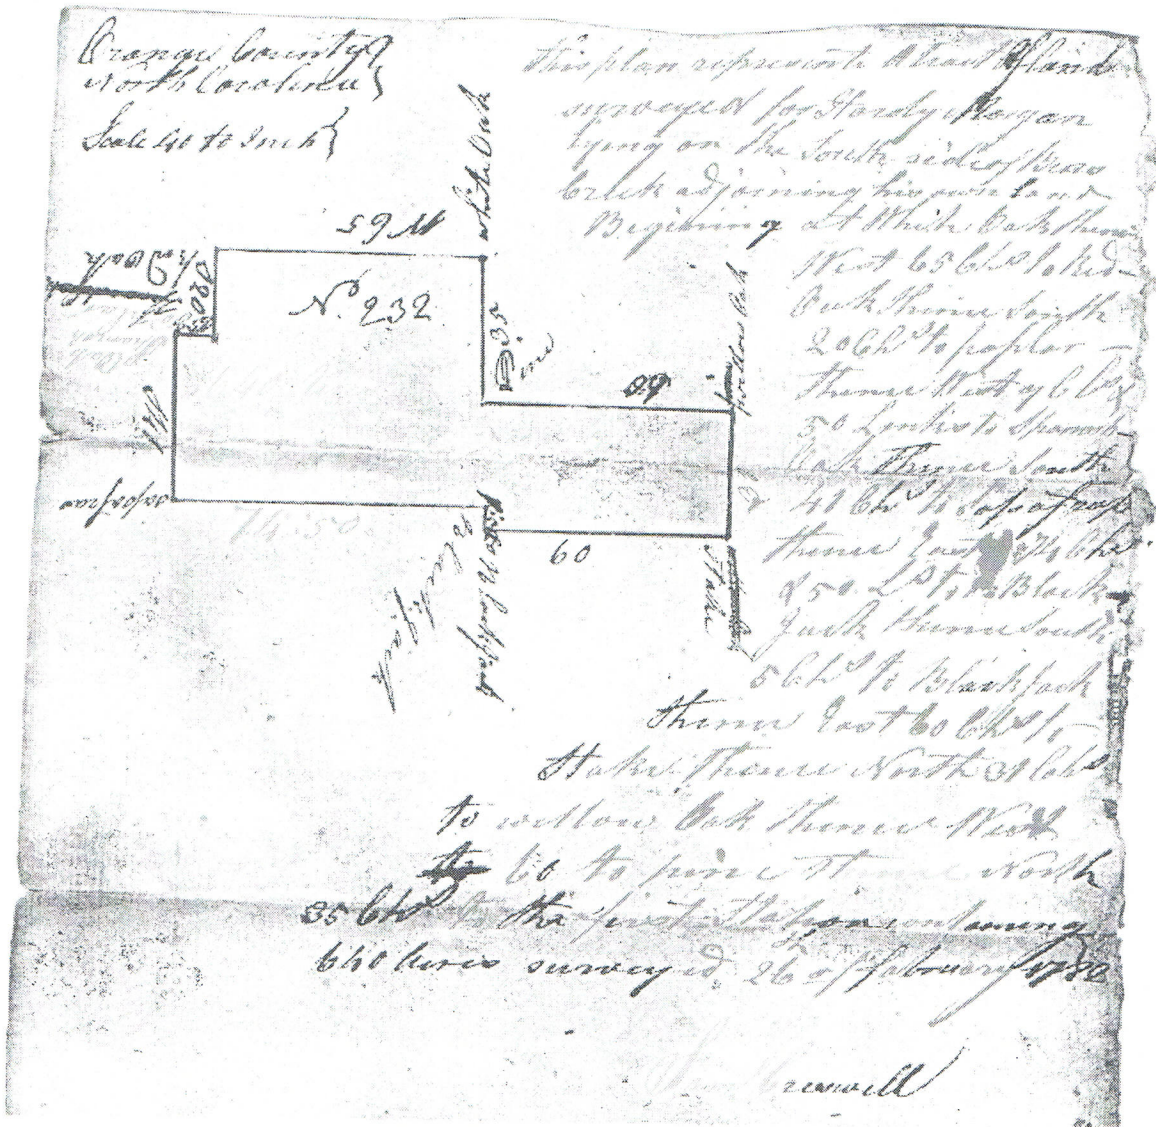 Orange County
North Carolina
Scale 40 to Inch
this plan represents a tract of land
surveyed for Hardy Morgan
lying on the South side of
Creek adjoining his own land
Begining at White Oak thence
West 65 Chs to Red
Oak thence South
20 Chs to poplar
thence West 9 Chs
50 Links to Spanish
Oak Thence South
41 Chs to Sasafras
thence East 74 Chs
& 50 Ls to Black
Jack thence South
5 Chs to Blackjack
thence East 60 Chs to
Stake Thence North 31 Chs
to willow Oak thence West
60 to pine thence North
35 Chs to the first Station containing
640 Acres surveyed 26 of february
Creswell
W 65
White Oak
No. 232
S 20
35
pine
60
willow Oak
41
sasafras
74.50
Black jack
60
Stake